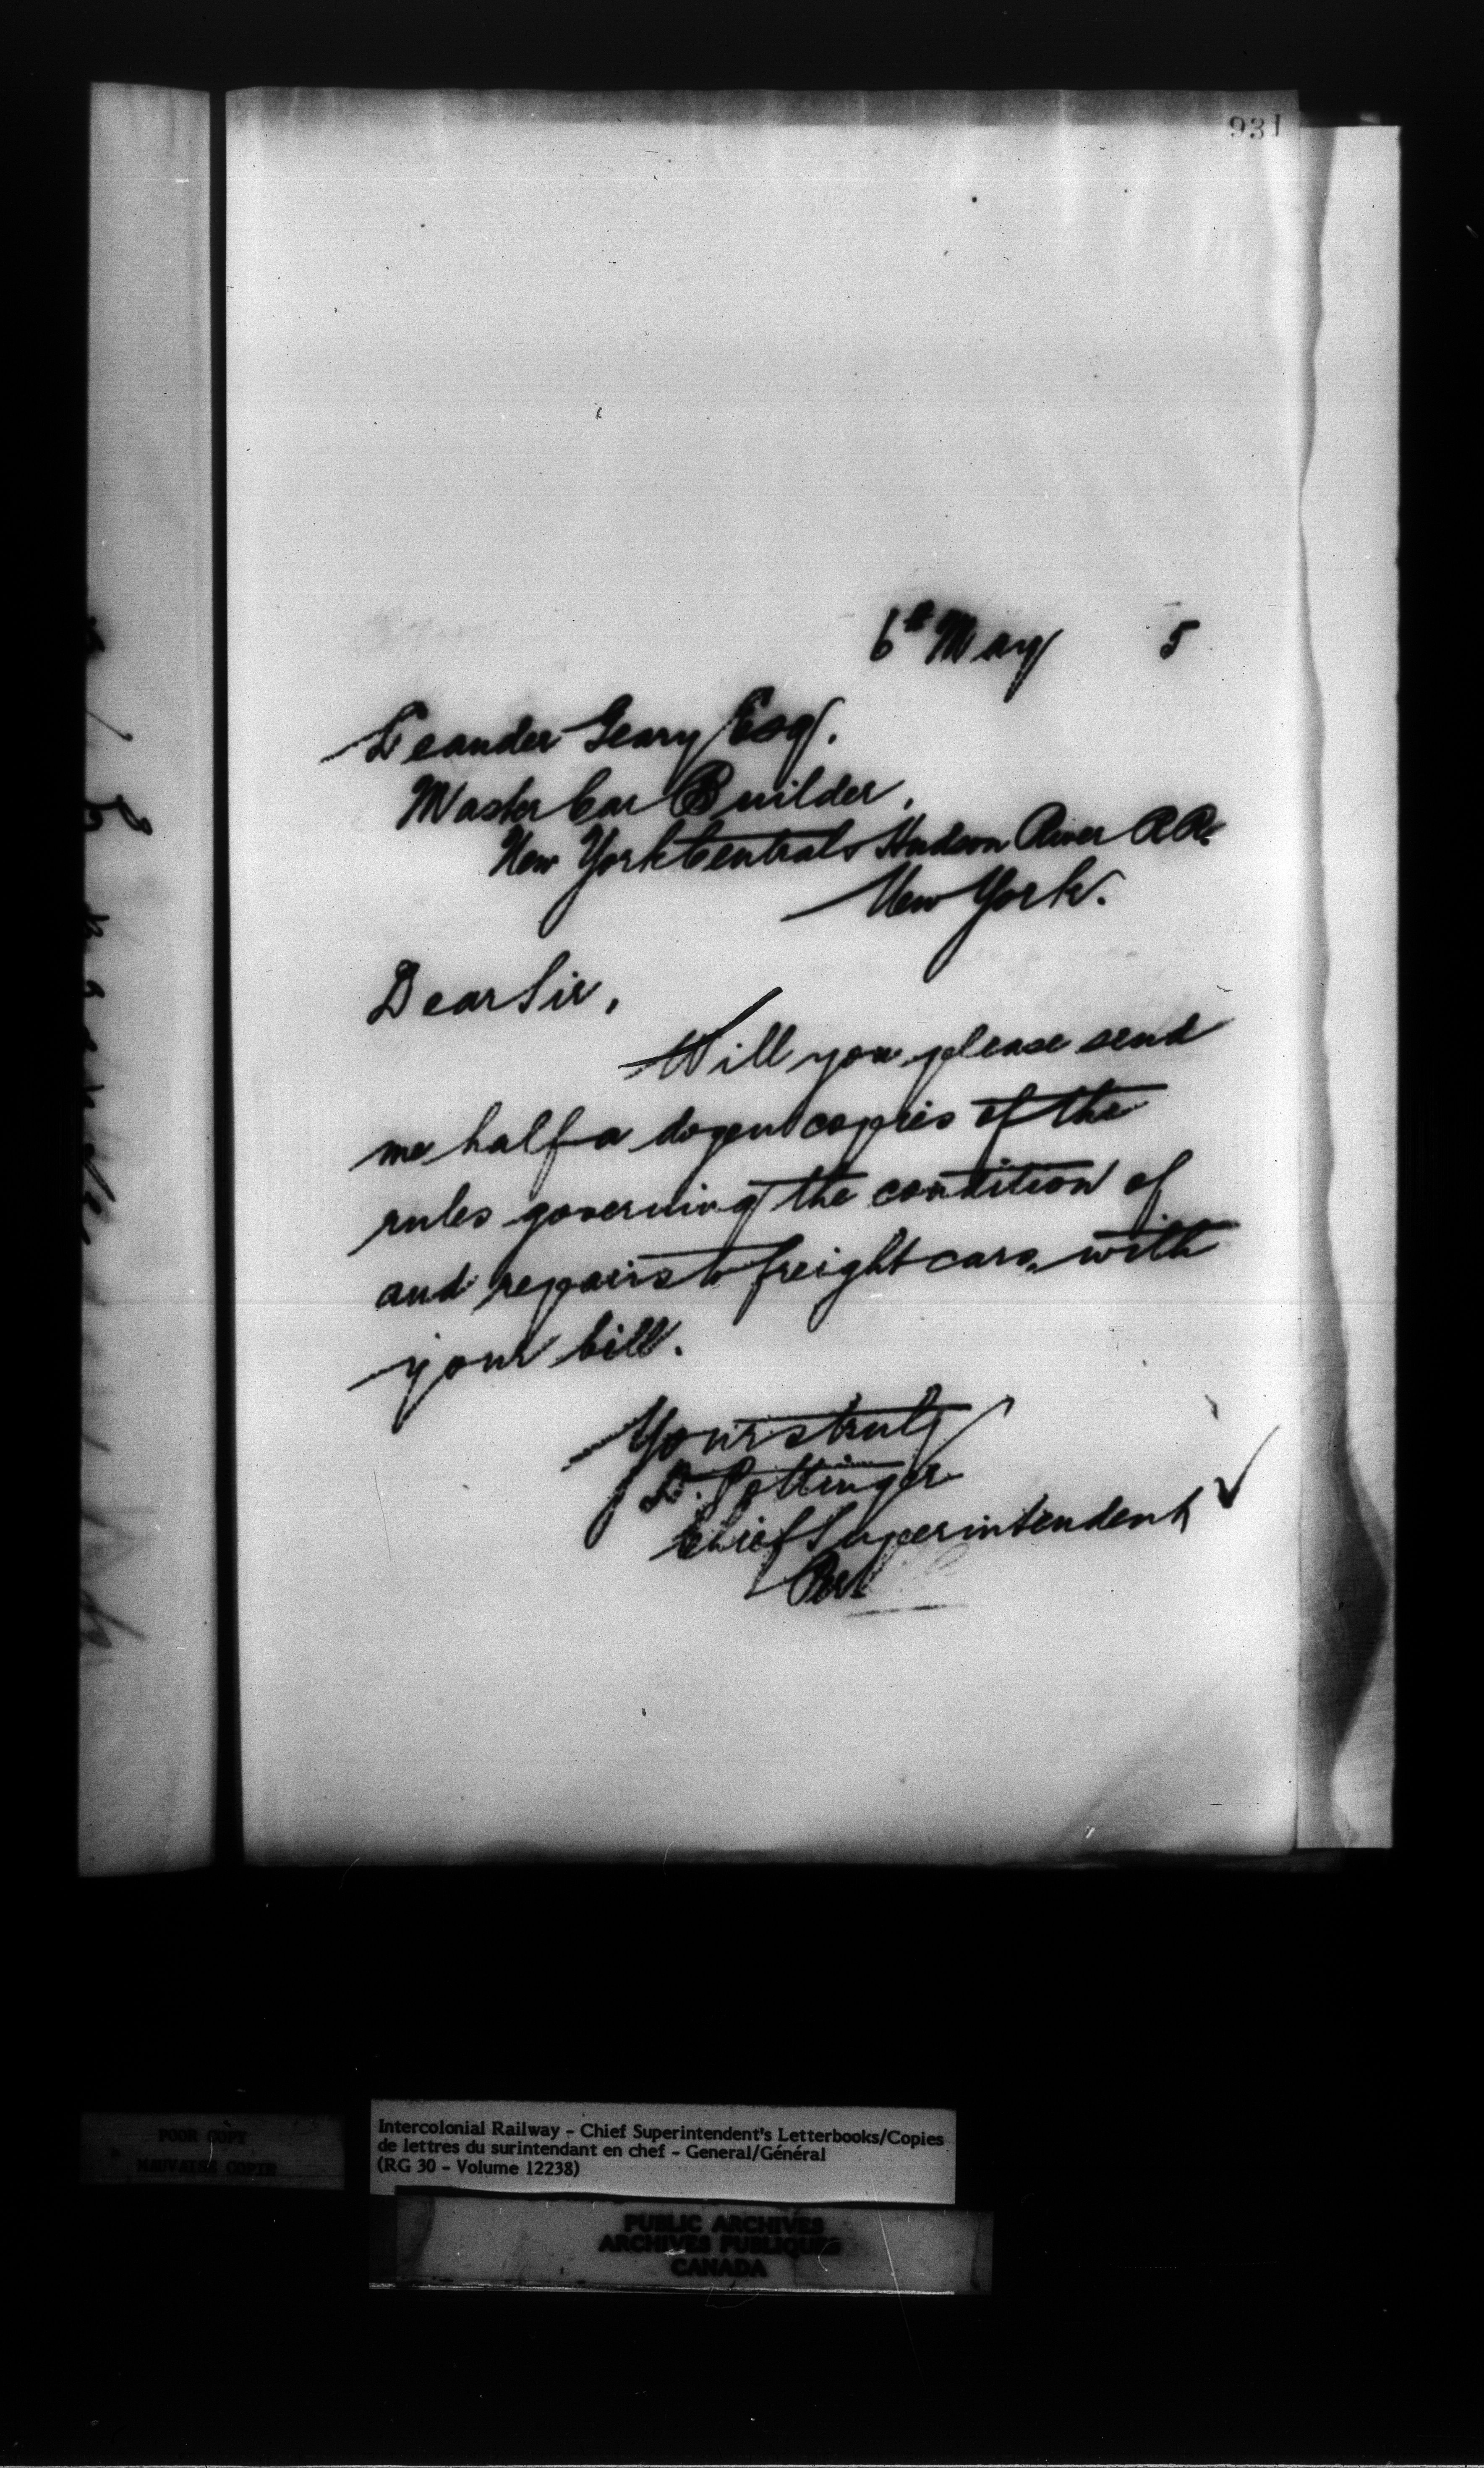 931
6th May 5
Leander Geary Esq.
Master Car Builder,
New York Central & Hudson River RR.
New York.
Dear Sir,
Will you please send
me half a dozen copies of the
rules governing the condition of
and repairs to freight cars, with
your bill.
Yours truly
D. Pottinger
Chief Superintendent
Per
POOR COPY
MAUVAISE COPIE
Intercolonial Railway - Chief Superintendent's Letterbooks/Copies
de lettres du surintendant en chef - General/Général
(RG 30 - Volume 12238)
PUBLIC ARCHIVES
ARCHIVES PUBLIQUES
CANADA